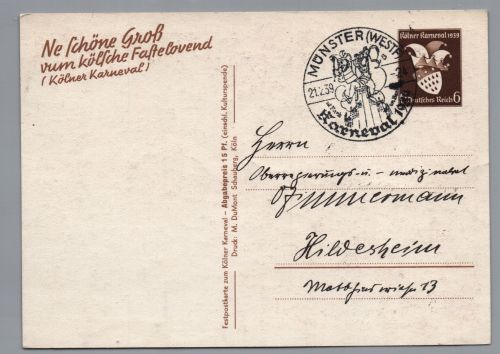 Ne schöne Groß
vum kölsche Fastelovend
(Kölner Karneval)
MÜNSTER (WESTF)
21.2.39
Karneval 1939
Kölner Karneval 1939
Deutsches Reich 6
Festpostkarte zum Kölner Karneval – Abgabepreis 15 Pf. (einschl. Kulturspende)
Druck: M. DuMont Schauberg, Köln
Herrn
Oberregierungs- u. -medizinalrat
Zimmermann
Hildesheim
13